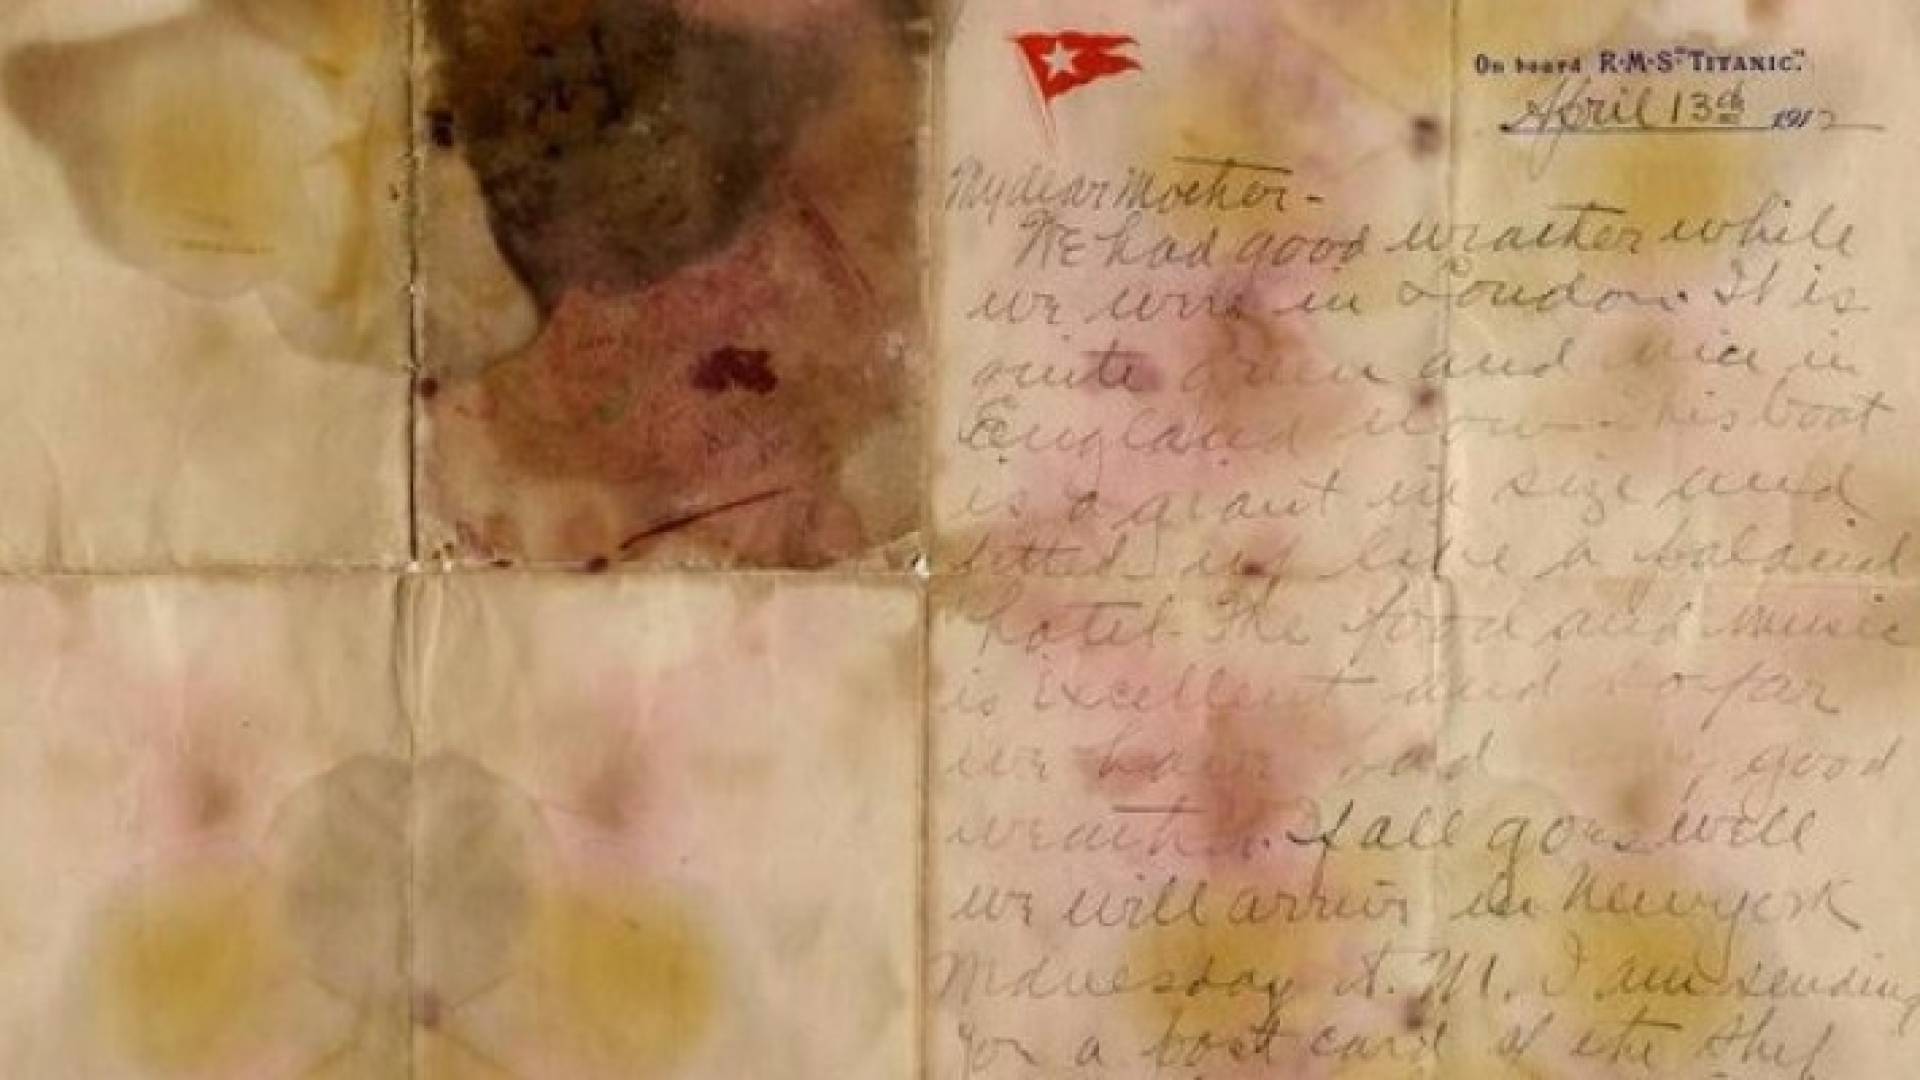 On board R·M·S "TITANIC."
April 13th 1912
My dear Mother -
We had good weather while
we were in London. It is
quite green and nice in
England now. This boat
is a giant in size and
fitted up like a palacial
hotel. The food and music
is excellent and so far
we have had very good
weather. If all goes well
we will arrive in New york
Wednesday A. M. I am sending
you a post card of the ship